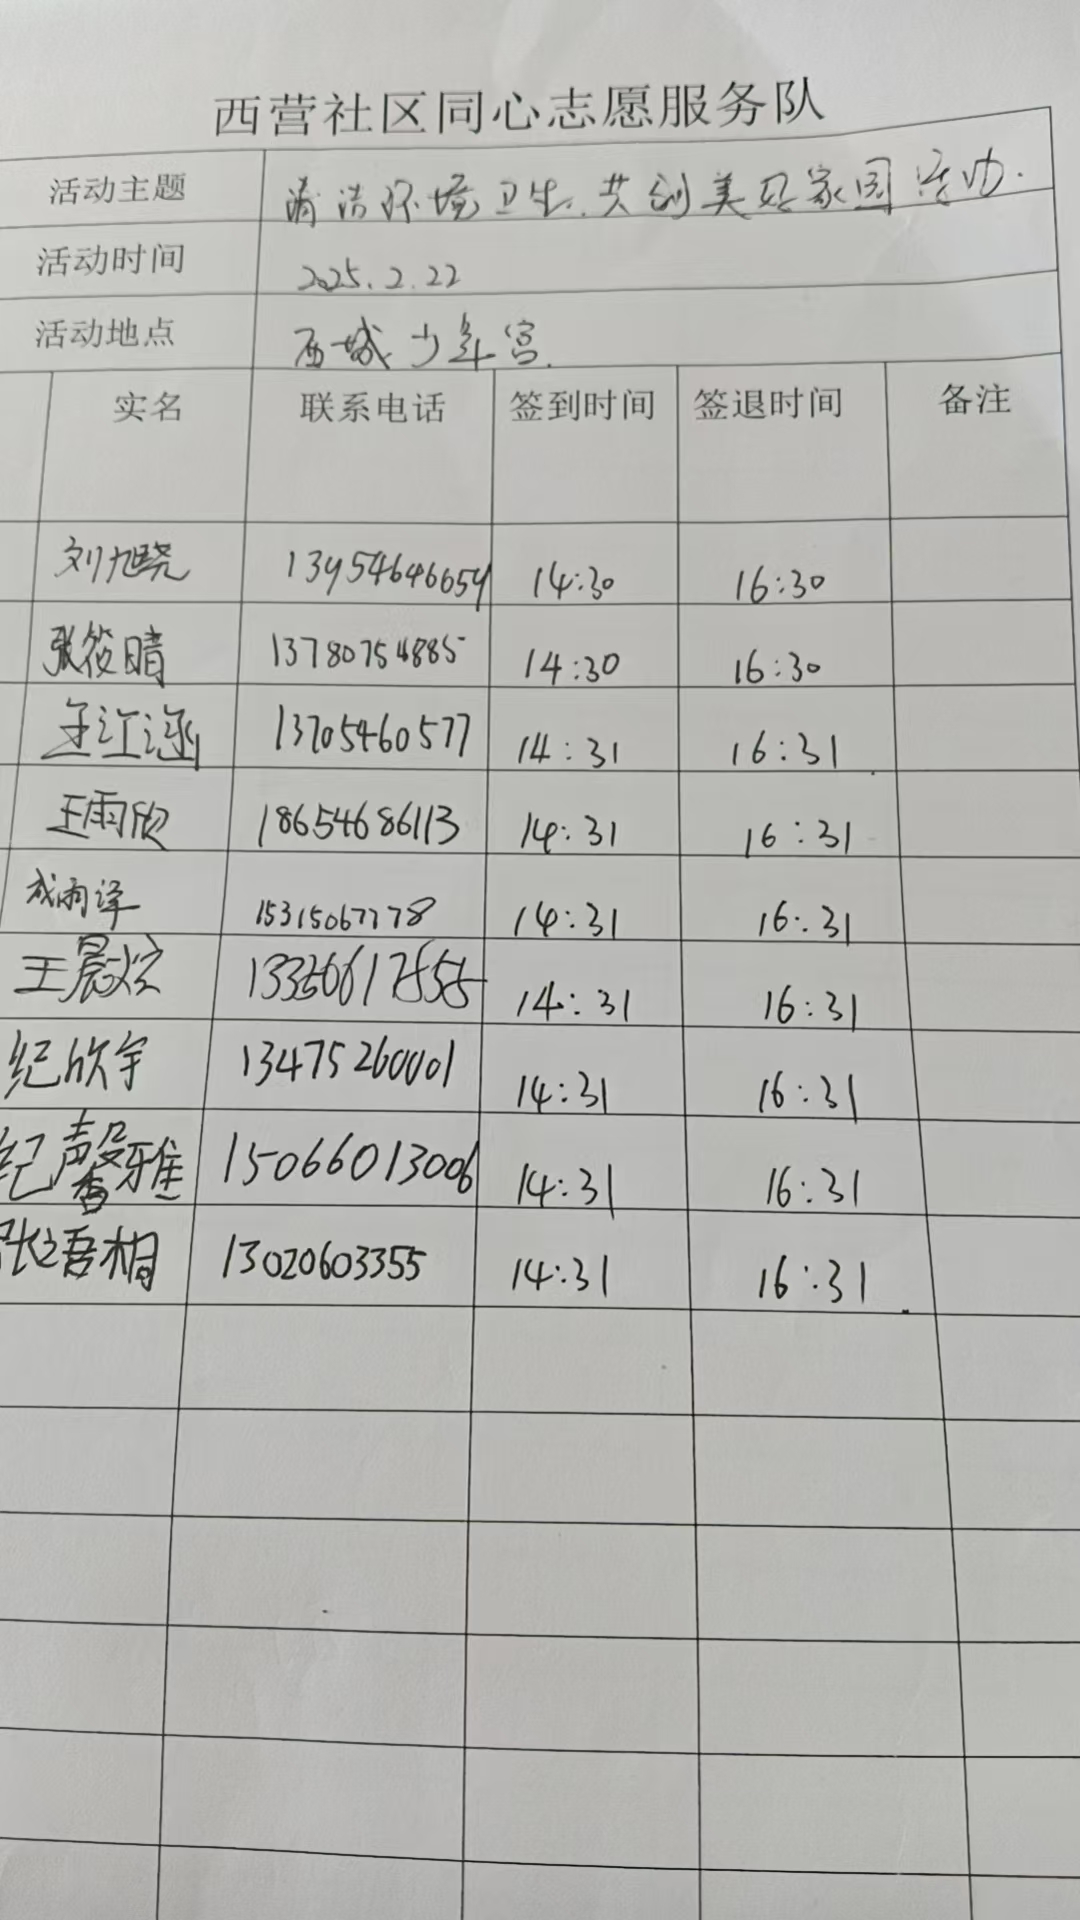 西营社区同心志愿服务队
活动主题 清洁环境卫生.共创美好家园活动.
活动时间 2025.2.22
活动地点 西城少年宫.
实名 联系电话 签到时间 签退时间 备注
刘旭晓 13954646654 14:30 16:30
张筱晴 13780754885 14:30 16:30
王江涵 13705460577 14:31 16:31
王雨欣 18654686113 14:31 16:31
成雨泽 15315067778 14:31 16:31
王晨 14:31 16:31
纪欣宇 13475260001 14:31 16:31
纪馨雅 15066013006 14:31 16:31
张语桐 13020603355 14:31 16:31